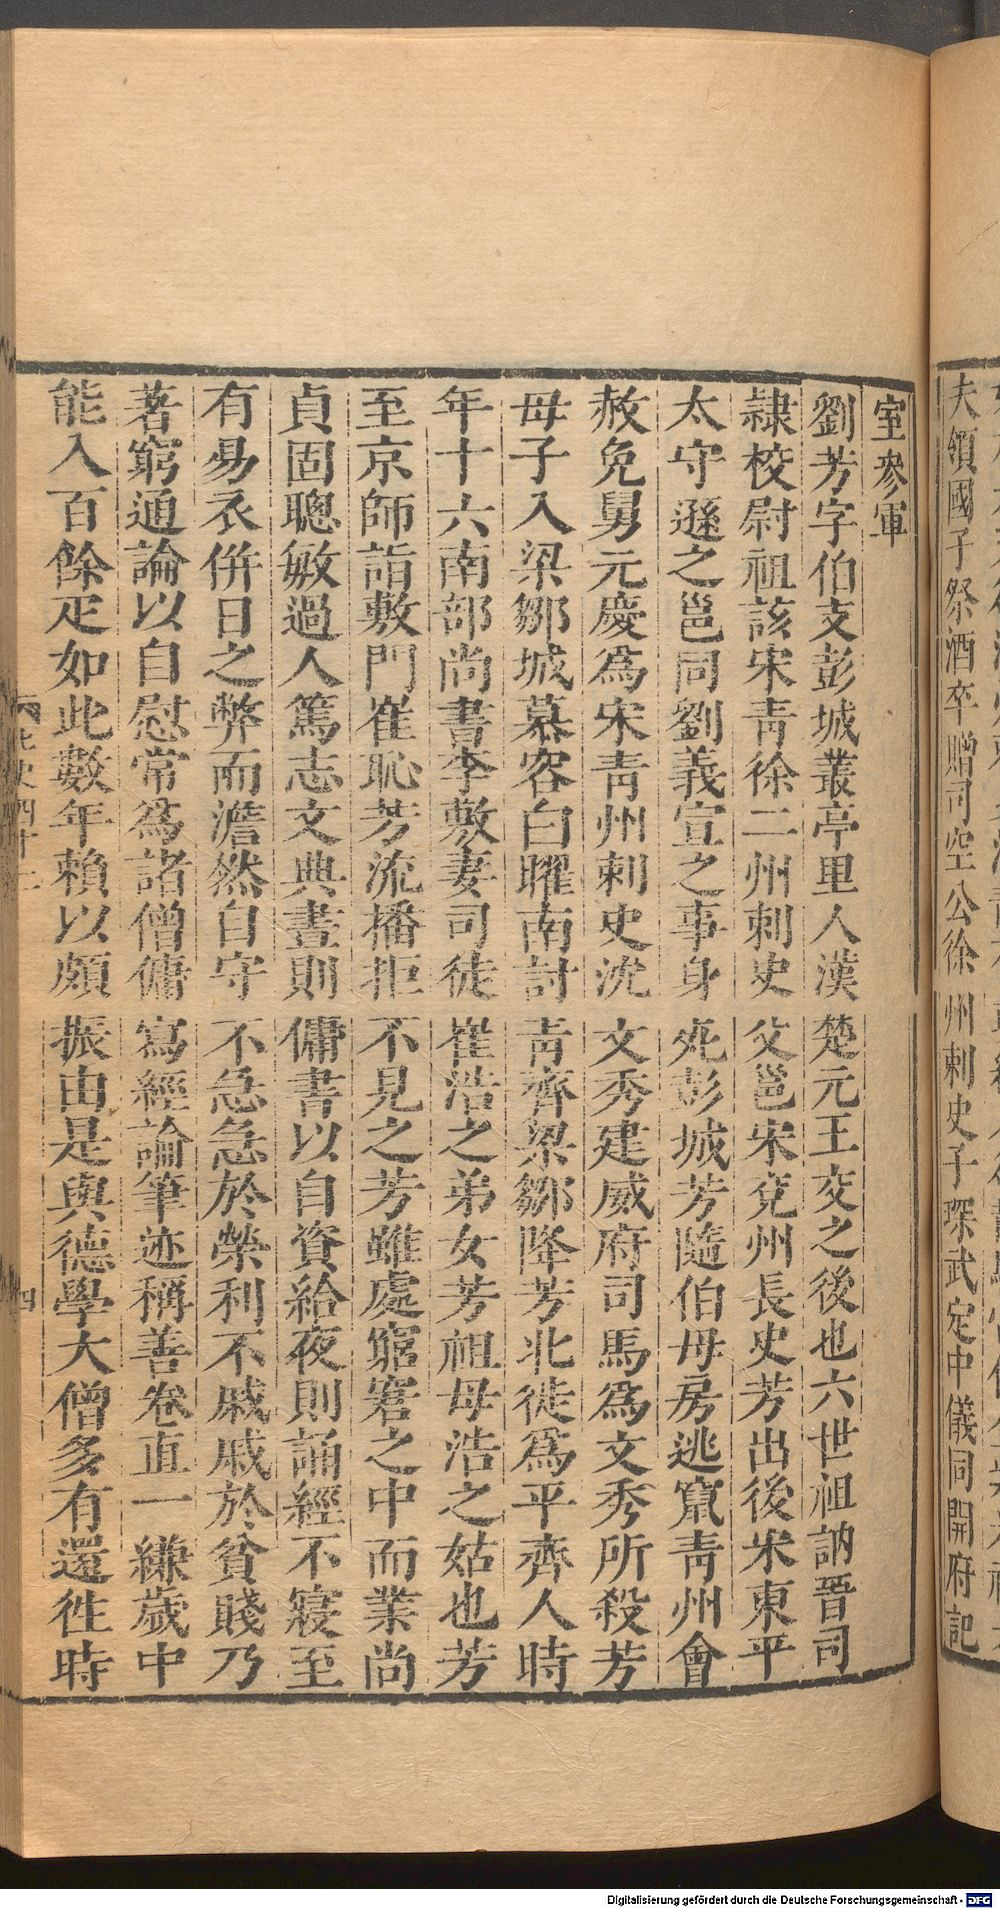 夫領國子祭酒卒贈司空公徐州刺史子琛武定中儀同開府記
室參軍
劉芳字伯支彭城叢亭里人漢楚元王交之後也六世祖訥晉司
隷校尉祖該宋靑徐二州刺史父邕宋兗州長史芳出後宋東平
太守遜之邕同劉義宣之事身死彭城芳隨伯母房逃竄靑州會
赦免舅元慶爲宋靑州刺史沈文秀建威府司馬爲文秀所殺芳
母子入梁鄒城慕容白曜南討靑齊梁鄒降芳北徙爲平齊人時
年十六南部尚書李敷妻司徒崔浩之弟女芳祖母浩之姑也芳
至京師詣敷門崔恥芳流播拒不見之芳雖處窮窘之中而業尚
貞固聰敏過人篤志文典晝則傭書以自資給夜則誦經不寢至
有易衣併日之弊而澹然自守不急急於榮利不戚戚於貧賤乃
著窮通論以自慰常爲諸僧傭寫經論筆迹稱善卷直一縑歲中
能入百餘疋如此數年賴以頗振由是與德學大僧多有還徃時
北史四十二
四
Digitalisierung gefördert durch die Deutsche Forschungsgemeinschaft - DFG